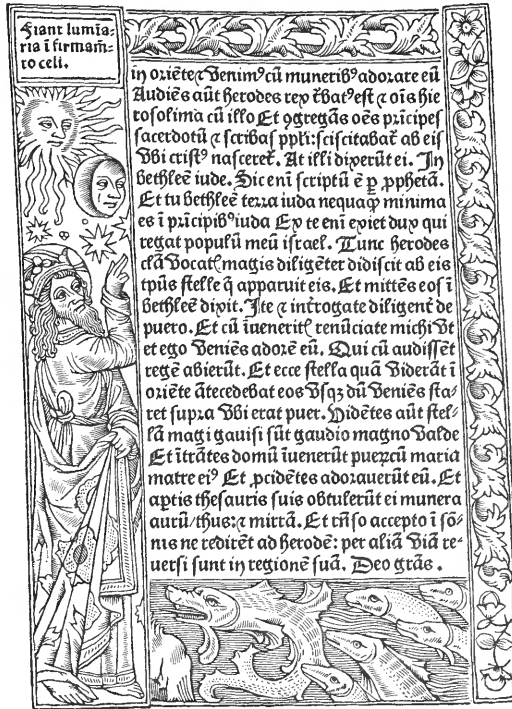 Fiant lumīa-
ria ī firmam̄-
to celi.
in oriēte ⁊ venimꝰ cū muneribꝰ adorare eū
Audiēs aūt herodes rex t̄batꝰ est ⁊ oīs hie
rosolima cū illo Et ꝯgregās oēs prīcipes
sacerdotū ⁊ scribas ppl̄i: sciscitabat᷑ ab eis
vbi cristꝰ nasceret᷑. At illi dixerūt ei. In
bethleē iude. Sic eni scriptū ē ꝑ ꝓphetā.
Et tu bethleē terra iuda nequaq̄ minima
es ī prīcipibꝰ iuda Ex te enī exiet dux qui
regat populū meū israel. Tunc herodes
clā vocatꝭ magis diligēter didiscit ab eis
tp̄us stelle q̄ apparuit eis. Et mittēs eos ī
bethleē dixit. Ite ⁊ int̄rogate diligent᷑ de
puero. Et cū īueneritꝭ renūciate michi vt
et ego veniēs adorē eū. Qui cū audissēt
regē abierūt. Et ecce stella quā viderāt ī
oriēte ātecedebat eos vsqꝫ dū veniēs sta-
ret supra vbi erat puer. Vidētes aūt stel-
lā magi gauisi sūt gaudio magno valde
Et ītrātes domū īuenerūt puerꝝ cū maria
matre eiꝰ Et ꝓcidētes adorauerūt eū. Et
aꝑtis thesauris suis obtulerūt ei munera
aurū/thus: ⁊ mirrā. Et rn̄so accepto ī sō-
nis ne redirēt ad herodē: per aliā viā re-
uersi sunt in regionē suā. Deo grās.